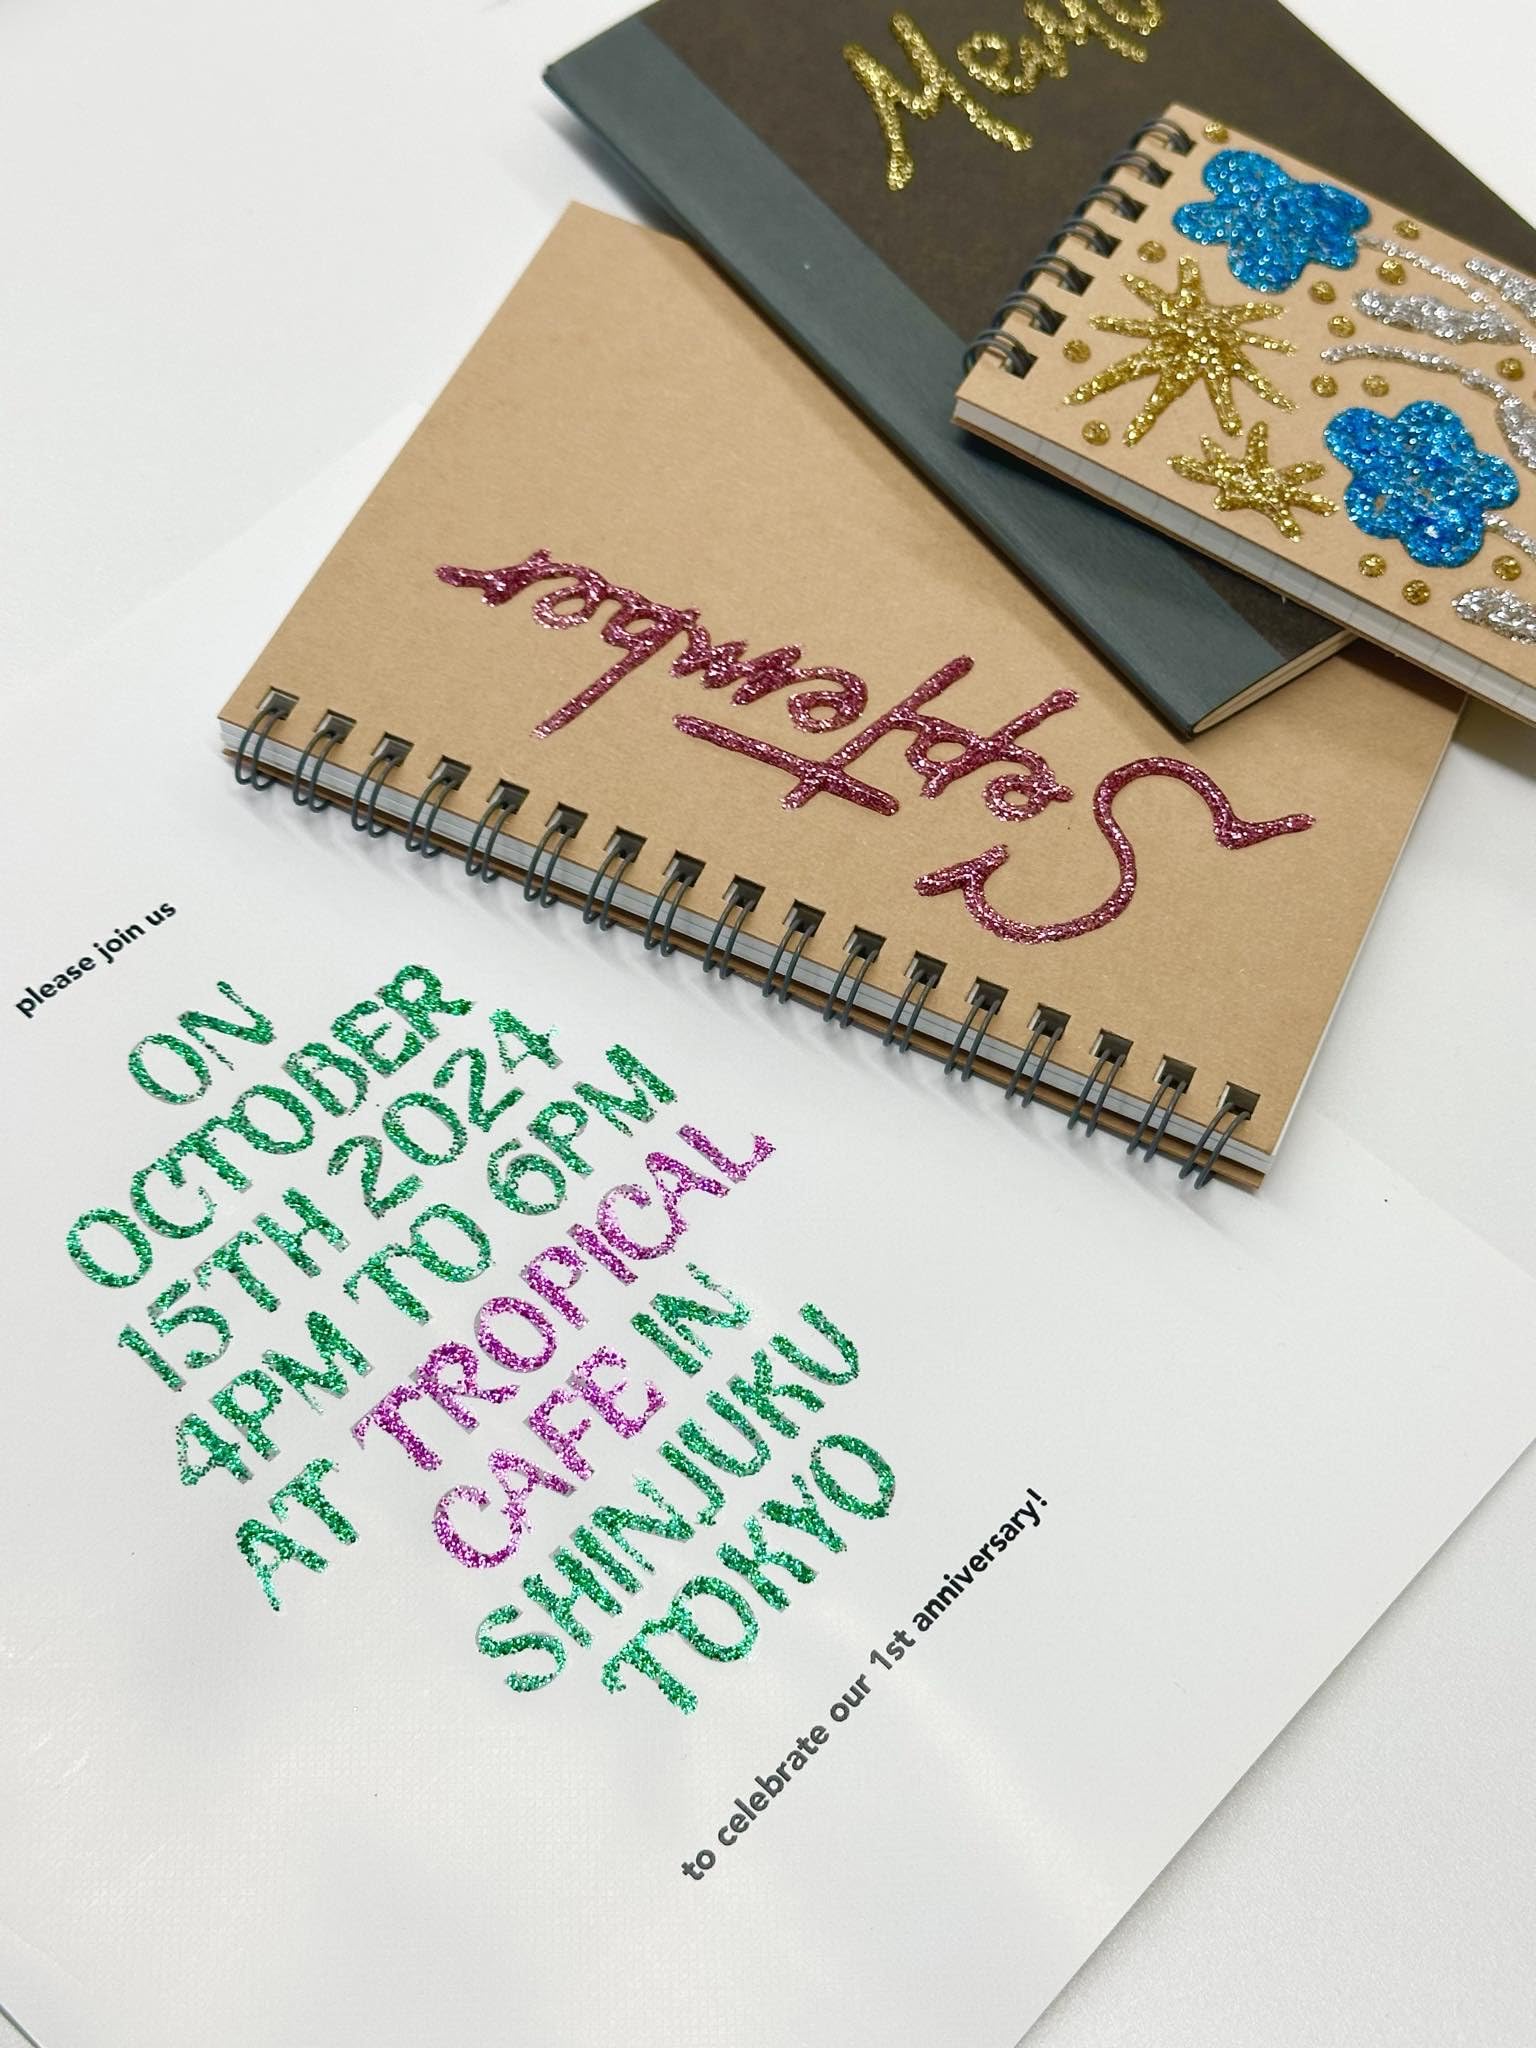 Memo
September
please join us
ON
OCTOBER
15TH 2024
4PM TO 6PM
AT TROPICAL
CAFE IN
SHINJUKU
TOKYO
to celebrate our 1st anniversary!